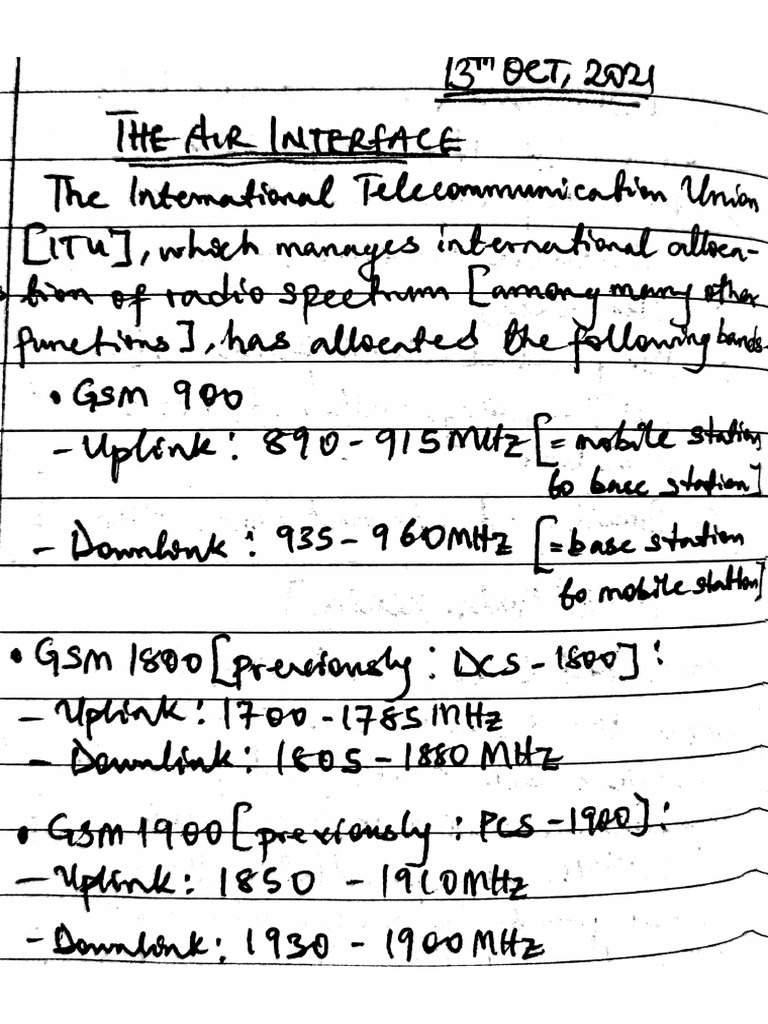 13th OCT, 2021
THE AIR INTERFACE
The International Telecommunication Union
[ITU], which manages international alloca-
tion of radio spectrum [among many other
functions], has allocated the following bands
• GSM 900
- Uplink: 890-915MHz [= mobile station
to base station]
- Downlink: 935-960MHz [= base station
to mobile station]
• GSM 1800 [previously: DCS-1800]:
- Uplink: 1700-1785MHz
- Downlink: 1805-1880MHz
• GSM 1900 [previously: PCS-1900]:
- Uplink: 1850 - 1910MHz
- Downlink: 1930 - 1900MHz